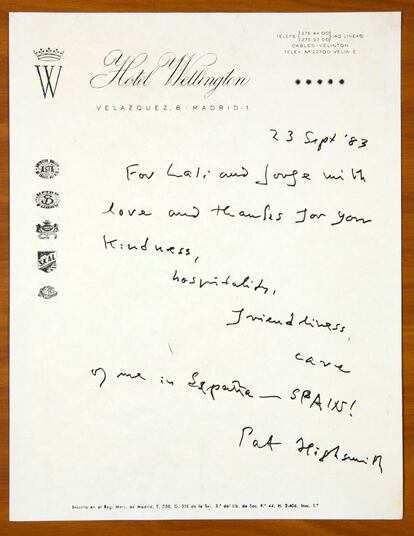 TELEFS. 275 44 00 (40 LINEAS)
275 52 00
CABLES-VELINTON
TELEX Nº 22700 VELIN E
W
Hotel Wellington
VELAZQUEZ, 8 - MADRID-1
SKAL
23 Sept '83
For Lali and Jorge with
love and thanks for your
kindness,
hospitality,
friendliness,
care
of me in España — SPAIN!
Pat Highsmith
Inscrita en el Reg. Merc. de Madrid, T. 750, G. 218 de la Sec. 3.ª del Lib. de Soc. F.º 44, H. 2.406, Insc. 1.ª